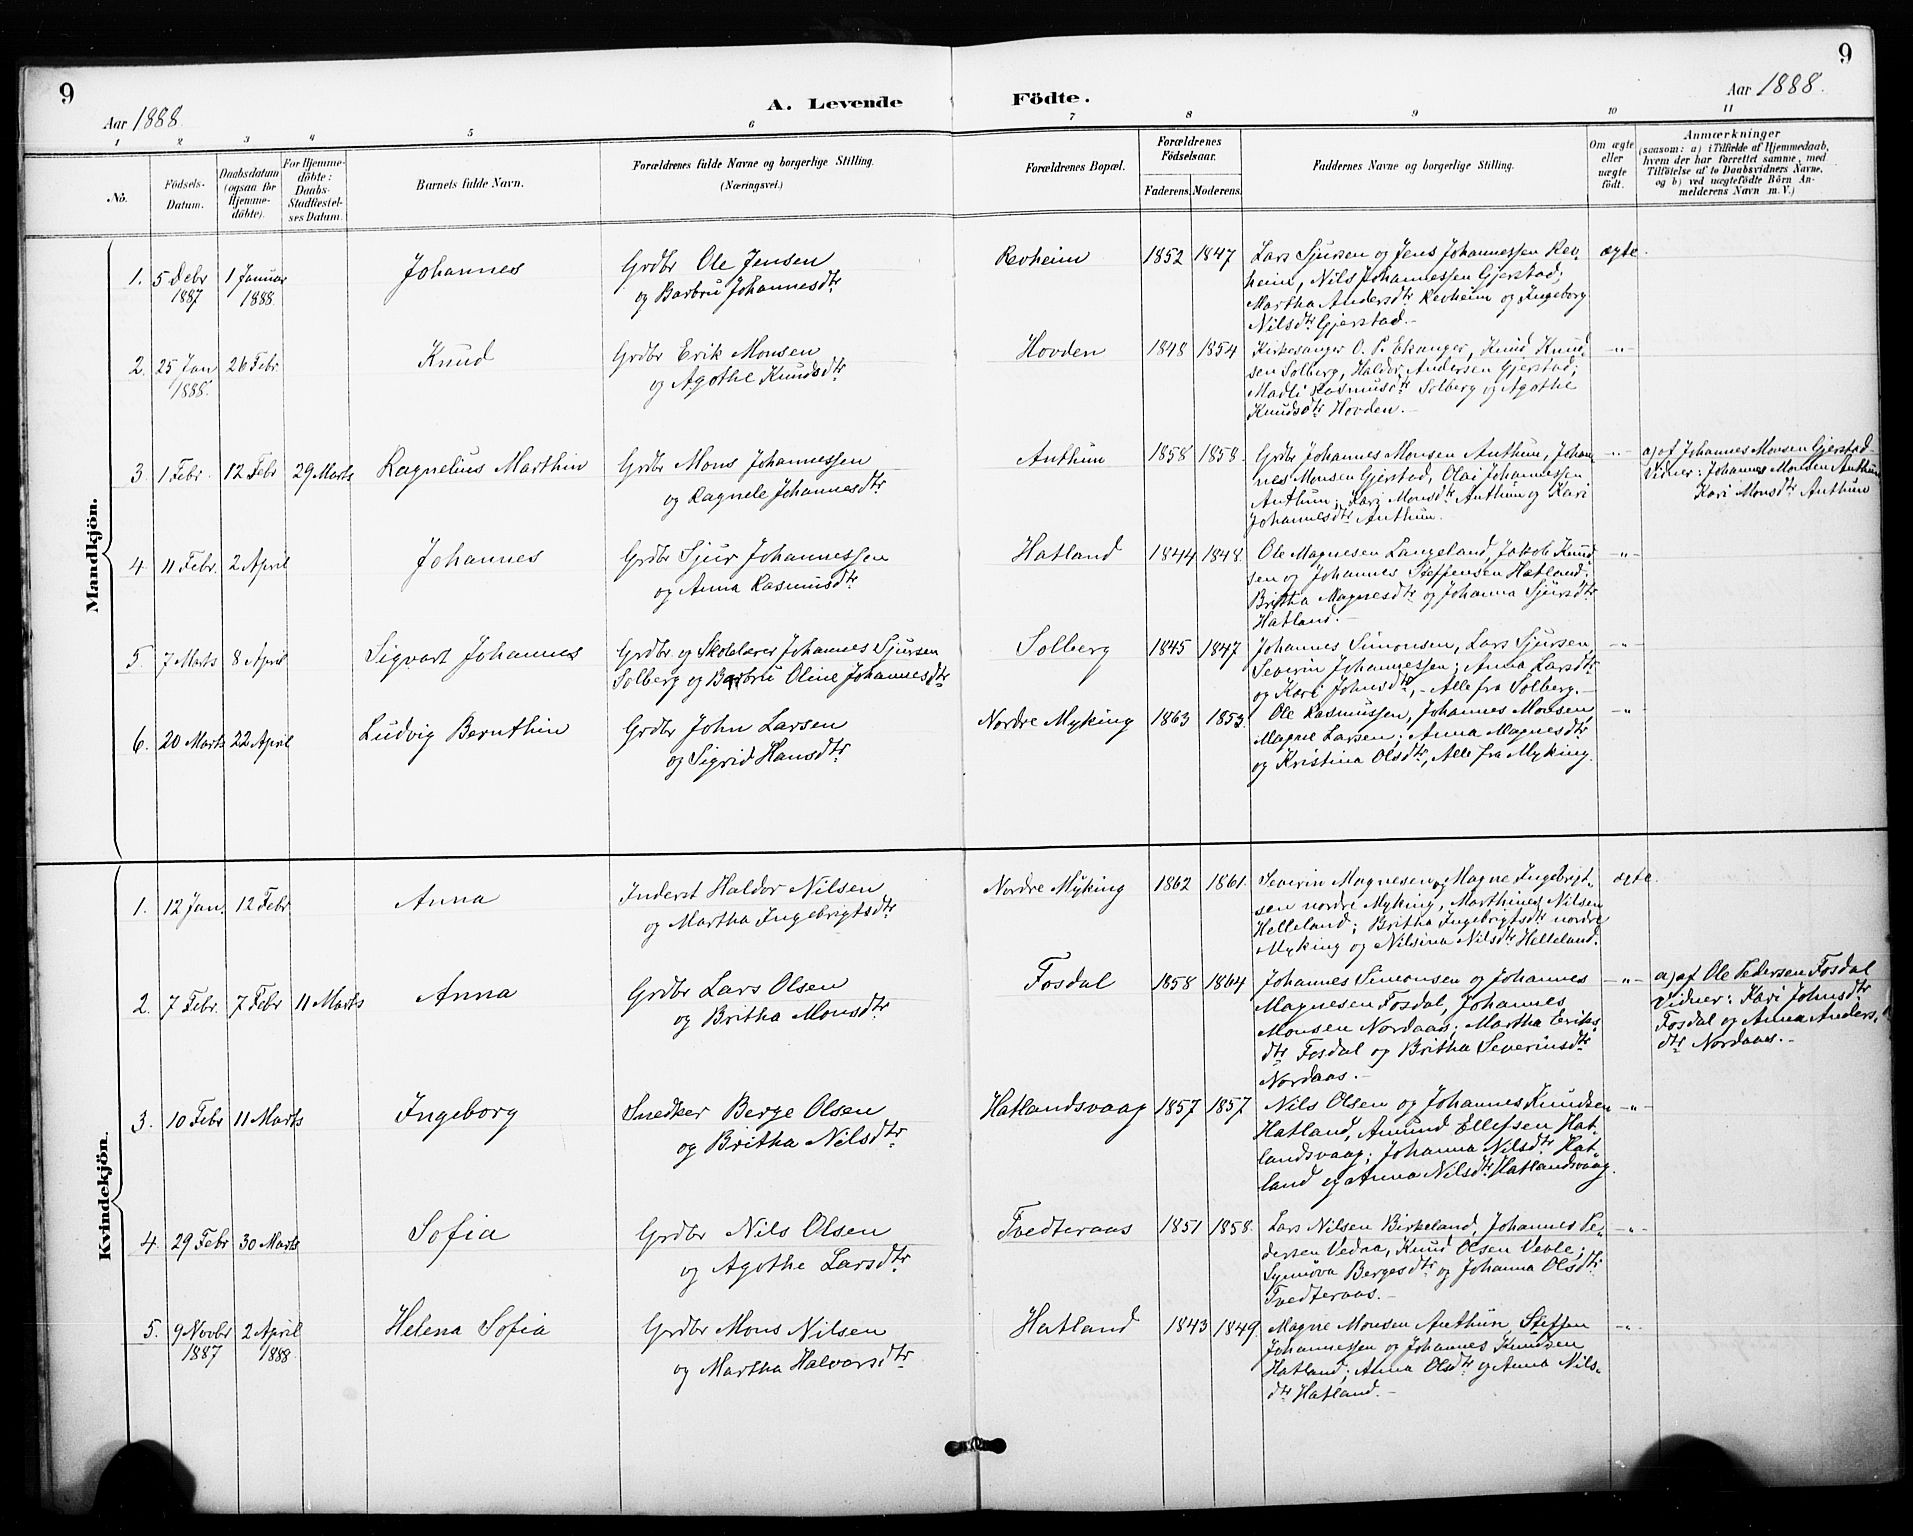 9
9
Aar 1888
A. Levende Födte.
Aar 1888.
1 2 3 4 5 6 7 8 9 10 11
No.
Födsels-Datum.
Daabsdatum (ogsaa for Hjemme-döbte).
For Hjemme-döbte: Daabs-Stadfæstel-ses Datum.
Barnets fulde Navn.
Forældrenes fulde Navne og borgerlige Stilling. (Næringsvei.)
Forældrenes Bopæl.
Forældrenes Födselsaar.
Faderens. Moderens.
Faddernes Navne og borgerlige Stilling.
Om ægte eller uægte födt.
Anmærkninger
(saasom: a) i Tilfælde af Hjemmedaab,
hvem der har forrettet samme, med
Tilföielse af to Daabsvidners Navne,
og b) ved uægtefödte Börn An-
melderens Navn m. V.)
Mandkjön.
1. 5 Debr 1887 1 Januar 1888 Johannes
Grdbr Ole Jensen
og Barbru Johannesdtr
Revheim 1852 1847
Lars Sjursen og Jens Johannessen Rev-
heim, Nils Johannessen Gjerstad,
Martha Andersdtr Revheim og Ingeborg
Nilsdtr Gjerstad.-
ægte.
2. 25 Jan 1888. 26 Febr Knud
Grdbr Erik Monsen
og Agothe Knudsdtr
Hovden 1848 1854
Kirkesanger O. P. Ekanger, Knud Knud-
sen Solberg, Haldor Andersen Gjerstad;
Madli Rasmusdtr Solberg og Agathe
Knudsdtr Hovden.-
-"-
3. 1 Febr 12 Febr 29 Marts Ragnelius Marthin
Grdbr Mons Johannessen
og Ragnele Johannesdtr
Anthun 1858 1858.
Grdbr Johannes Monsen Anthun, Johan
nes Monsen Gjerstad, Olai Johannessen
Anthun; Kari Monsdtr Anthun og Kari
Johannesdtr Anthun.
-"-
a) af Johannes Monsen Gjerstad
Vidner: Johannes Monsen Anthun
Kari Monsdtr Anthun
4. 11 Febr. 2 April Johannes
Grdbr Sjur Johannessen
og Anna Rasmusdtr
Hatland 1844 1848.
Ole Magnesen Langeland, Jakob Knud-
sen og Johannes Steffensen Hatland;
Britha Magnesdtr og Johanna Sjursdtr
Hatland.-
-"-
5. 7 Marts 8 April Sigvart Johannes
Grdbr og Skolelærer Johannes Sjursen
Solberg og Barbru Oline Johannesdtr
Solberg 1845 1847
Johannes Simonsen, Lars Sjursen,
Severin Johannessen; Anna Larsdtr
og Kari Johnsdtr, - Alle fra Solberg.-
-"-
6. 20 Marts 22 April Ludvig Bernthin
Grdbr John Larsen
og Sigrid Hansdtr
Nordre Myking 1863 1853.
Ole Rasmussen, Johannes Monsen,
Magne Larsen; Anna Magnesdtr
og Kristina Olsdtr, Alle fra Myking.
-"-
Kvindekjön.
1. 12 Jan. 12 Febr. Anna
Inderst Haldor Nilsen
og Martha Ingebrigtsdtr
Nordre Myking 1862 1861.
Severin Magnesen og Magne Ingebrigt-
sen nordre Myking, Marthines Nilsen
Helleland; Britha Ingebrigtsdtr nordre
Myking og Nilsina Nilsdtr Helleland.
ægte.
2. 7 Febr. 7 Febr 11 Marts Anna
Grdbr Lars Olsen
og Britha Monsdtr
Fosdal 1858 1864
Johannes Simonsen og Johannes
Magnesen Fosdal, Johannes
Monsen Nordaas; Martha Eriks-
dtr Fosdal og Britha Severinsdtr
Nordaas.-
-"-
a) af Ole Pedersen Fosdal
Vidner: Kari Johnsdtr
Fosdal og Anna Anders-
dtr Nordaas.-
3. 10 Febr 11 Marts Ingeborg
Snedker Berge Olsen
og Britha Nilsdtr
Hatlandsvaag 1857 1857
Nils Olsen og Johannes Knudsen
Hatland, Amund Ellefsen Hat-
landsvaag; Johanna Nilsdtr Hat-
land og Anna Nilsdtr Hatlandsvaag.
-"-
4. 29 Febr 30 Marts Sofia
Grdbr Nils Olsen
og Agothe Larsdtr
Tvedteraas 1851 1858.
Lars Nilsen Birkeland, Johannes Pe-
dersen Vedaa, Knud Olsen Vevle;
Synnöva Bergesdtr og Johanna Olsdtr
Tvedteraas.-
-"-
5. 9 Novbr 1887 2 April 1888. Helena Sofia
Grdbr Mons Nilsen
og Martha Halvorsdtr
Hatland 1843 1849
Magne Monsen Anthun Steffen
Johannessen og Johannes Knudsen
Hatland; Anna Olsdtr og Anna Nils-
dtr Hatland.-
-"-